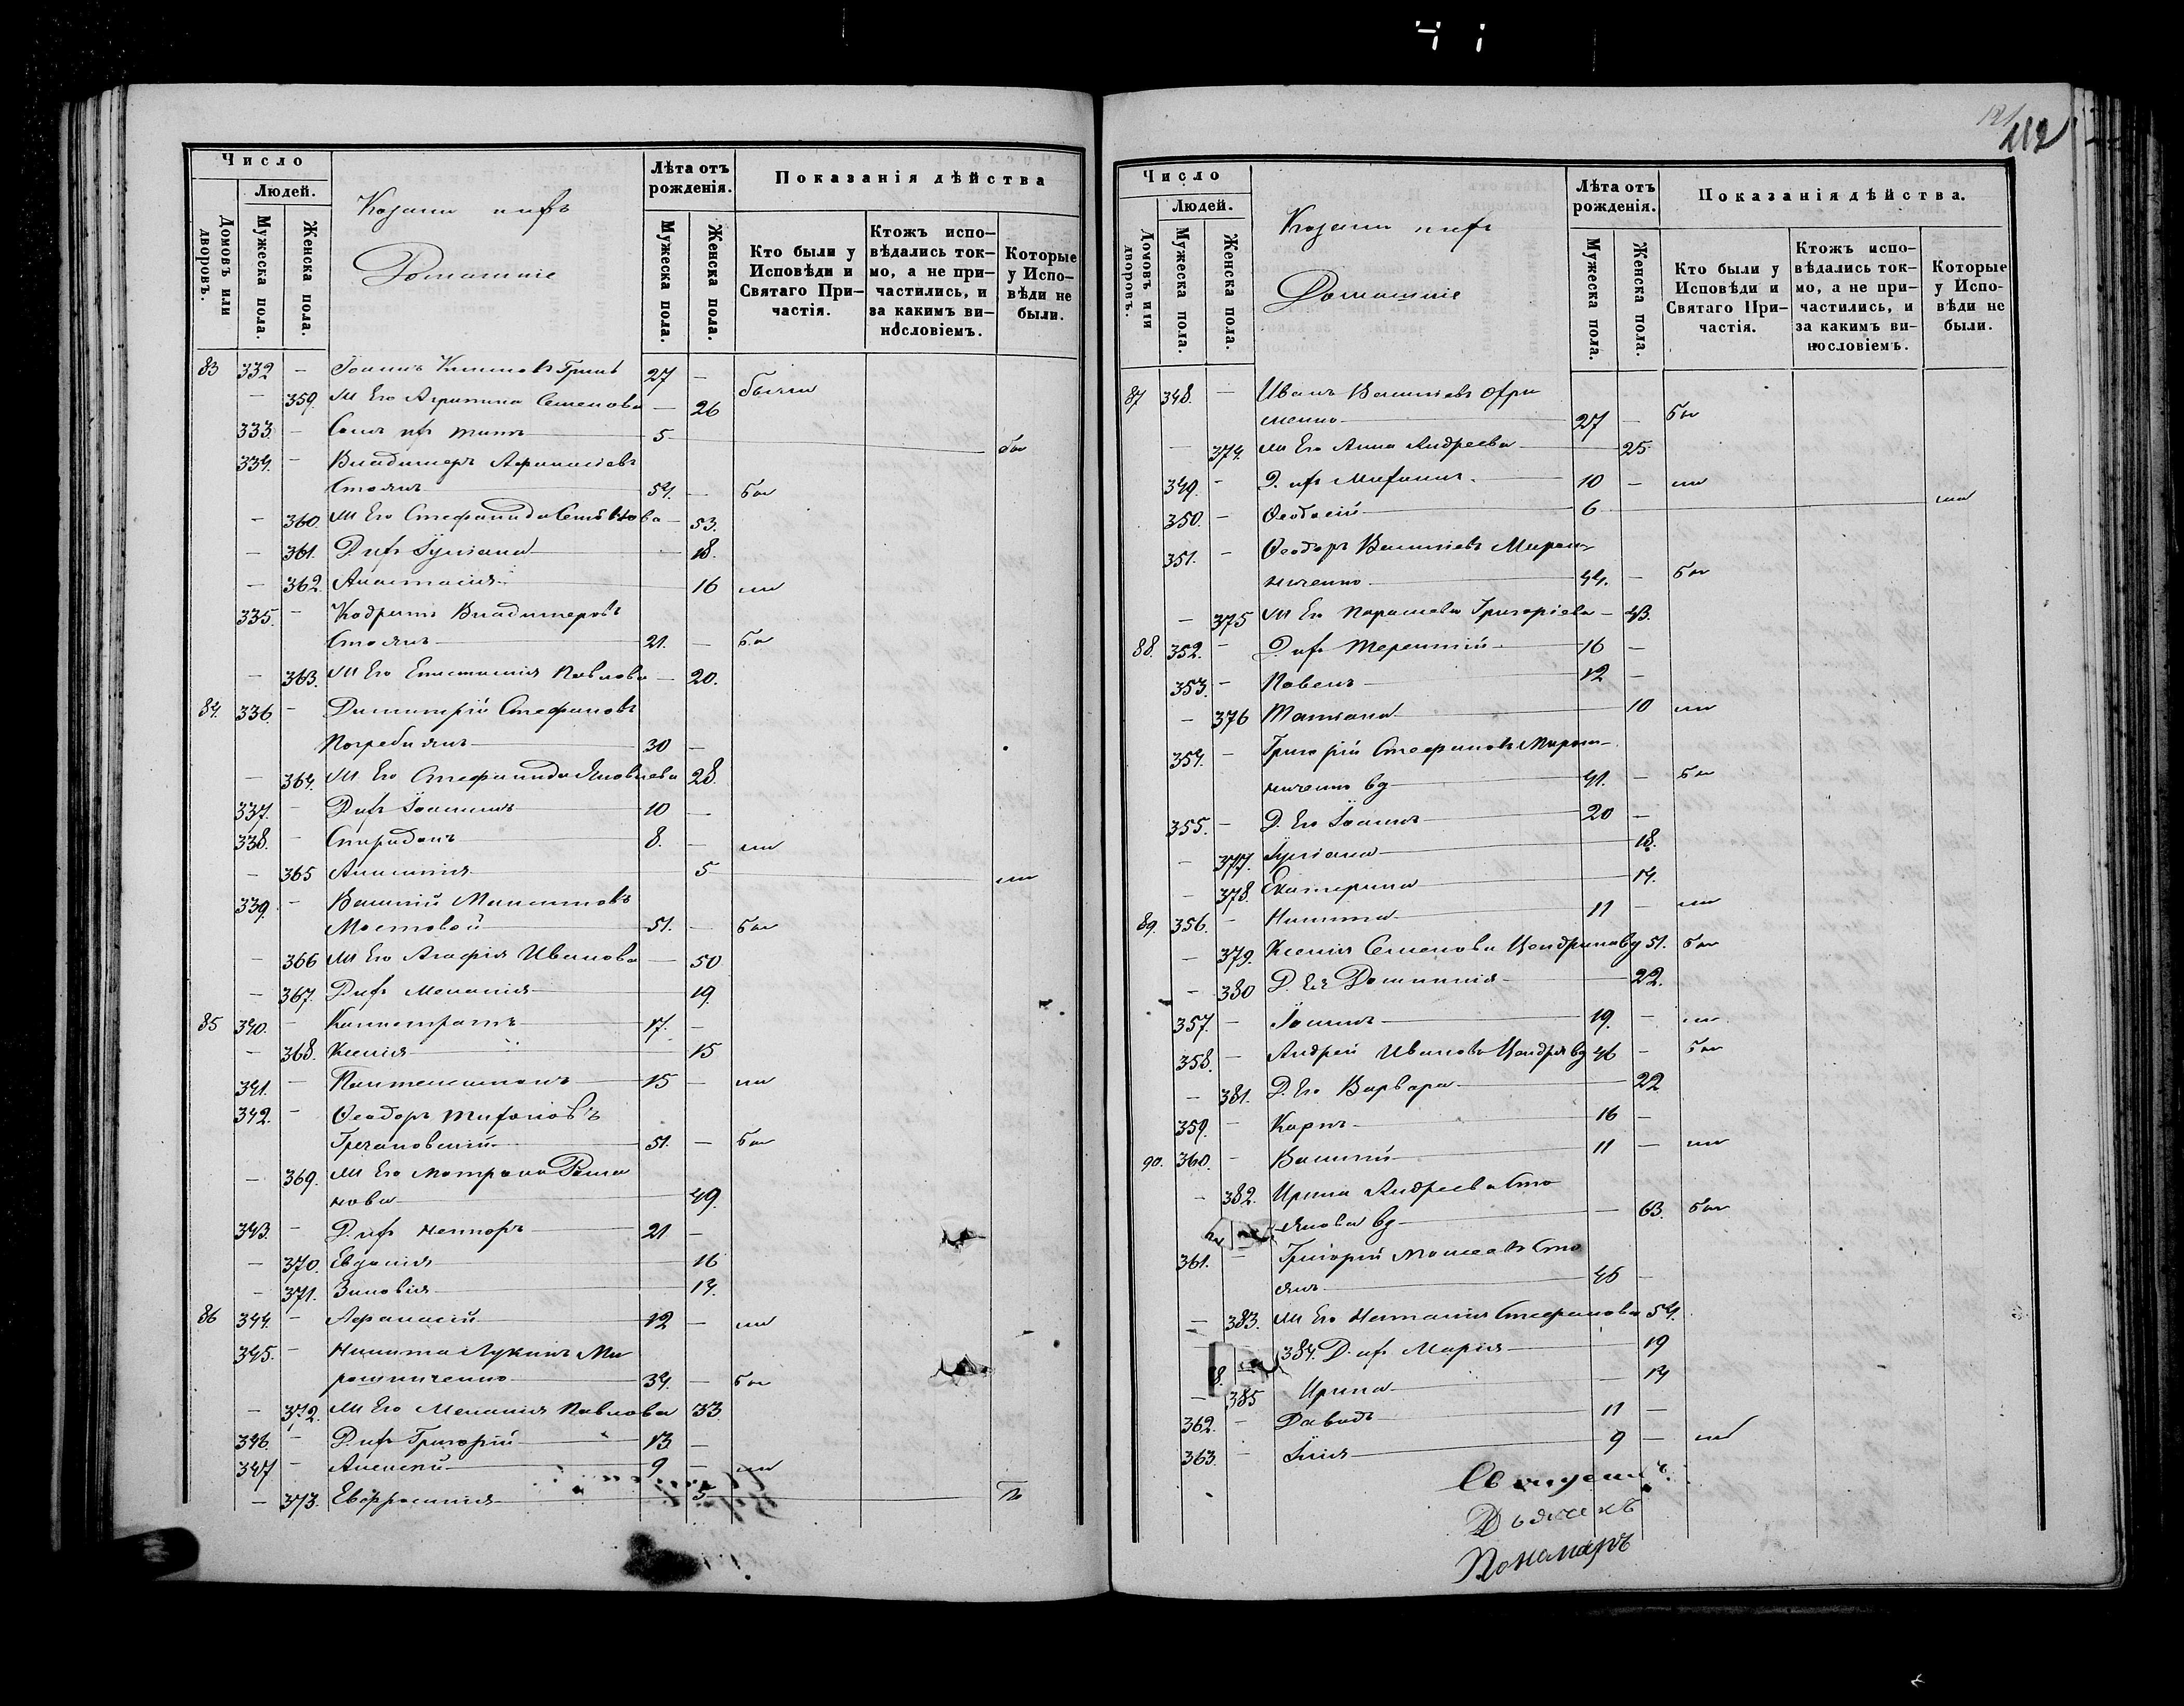 Число
Людей.
Домовъ или дворовъ.
Мужеска пола.
Женска пола.
Козаки ихъ
Домашніе
Лѣта отъ рожденія.
Мужеска пола.
Женска пола.
Показанія дѣйства
Кто были у Исповѣди и Святаго Причастія.
Ктожъ исповѣдались токмо, а не причастились, и за какимъ винословіемъ.
Которые у Исповѣди не были.
83 332 - Іоаннъ 27 - были
- 359. Ж Его Агрипина Семенова - 26
333. - Сынъ ихъ Титъ 5 бы
334. - Владимеръ Афанасіевъ
Стоянъ 54. - бы
- 360. Ж Его Стефанида - 53.
- 361. Д. ихъ Іуліана - 18.
- 362. Анастасія 16 ли
335. - Кодратъ Владимеровъ
Стоянъ 21. - бы
- 363. Ж Его Евстасія Павлова - 20.
84. 336. - Димитрій Стефановъ
Погребнякъ 30 -
- 364. Ж Его Стефанида Яковлева 28.
337. - Д. ихъ Іоаннъ 10 -
338. - Спиридонъ 8. - ли
- 365 5 ли
339. - Василій Максимовъ
Мостовой 51. - бы
- 366 Ж Его Агафія Иванова - 50
- 367. Д. ихъ Меланія 19.
85 340. - Калистратъ 17. -
- 368. Ксенія 15
341. - Пантелеимонъ 15 - ли
342. - Феодоръ
Гречановскій 51. - бы
- 369. Ж Его Матрона Рома
нова 49.
343. - Д. ихъ Несторъ 21 -
- 370. Евдокія 16
- 371. Зиновія 14.
86 344. - Афанасій 12 - ли
345. - Никита Лукинъ Ми
рошниченко 34. - бы
- 372. Ж Его Меланія Павлова 33
346. - Д. ихъ Григорій 13 -
347 - Алексѣй 9 - ли
- 373. Евфросинія 5
112
Число
Людей.
Домовъ или дворовъ.
Мужеска пола.
Женска пола.
Козаки ихъ
Домашніе
Лѣта отъ рожденія.
Мужеска пола.
Женска пола.
Показанія дѣйства.
Кто были у Исповѣди и Святаго Причастія.
Ктожъ исповѣдались токмо, а не причастились, и за какимъ винословіемъ.
Которые у Исповѣди не были.
87 348. - Иванъ Василіевъ
менко 27 - бы
- 374. Ж Его Анна Андреева 25
349. - Д. ихъ 10 - ли
350. - Феодосій 6 ли
351. - Феодоръ Василіевъ Мирош
ниченко 44. - бы
- 375 Ж Его Параскева Григоріева - 43.
88. 352. - Д. ихъ Терентій 16 -
353. - Павелъ 12 -
- 376 Татіана 10 ли
354. - Григорій Стефановъ Мирош
ниченко вд 41. - бы
355. - Д. Его Іоаннъ 20 -
- 377. Іуліана 18.
- 378. Екатерина 14.
89. 356. - Никита 11 - ли
- 379. Ксенія Семенова вд 51. бы
- 380 Д. Ея Домникія 22.
357. - Іоаннъ 19. - ли
358. - Андрей Ивановъ вд 46 - бы
- 381. Д. Его Варвара 22
359. - Карпъ 16 -
90. 360. - Василій 11 - ли
- 382. Ирина Андреева Сто
янова вд - 63. бы
361. - Григорій Моисеевъ Сто
янъ 46 -
- 383. Ж Его Наталія Стефанова 54.
384. Д. ихъ Марія 19
- 385 Ирина - 14
362. - Давидъ 11 -
363. - Илія 9 - ли
Дьячекъ
Пономаръ